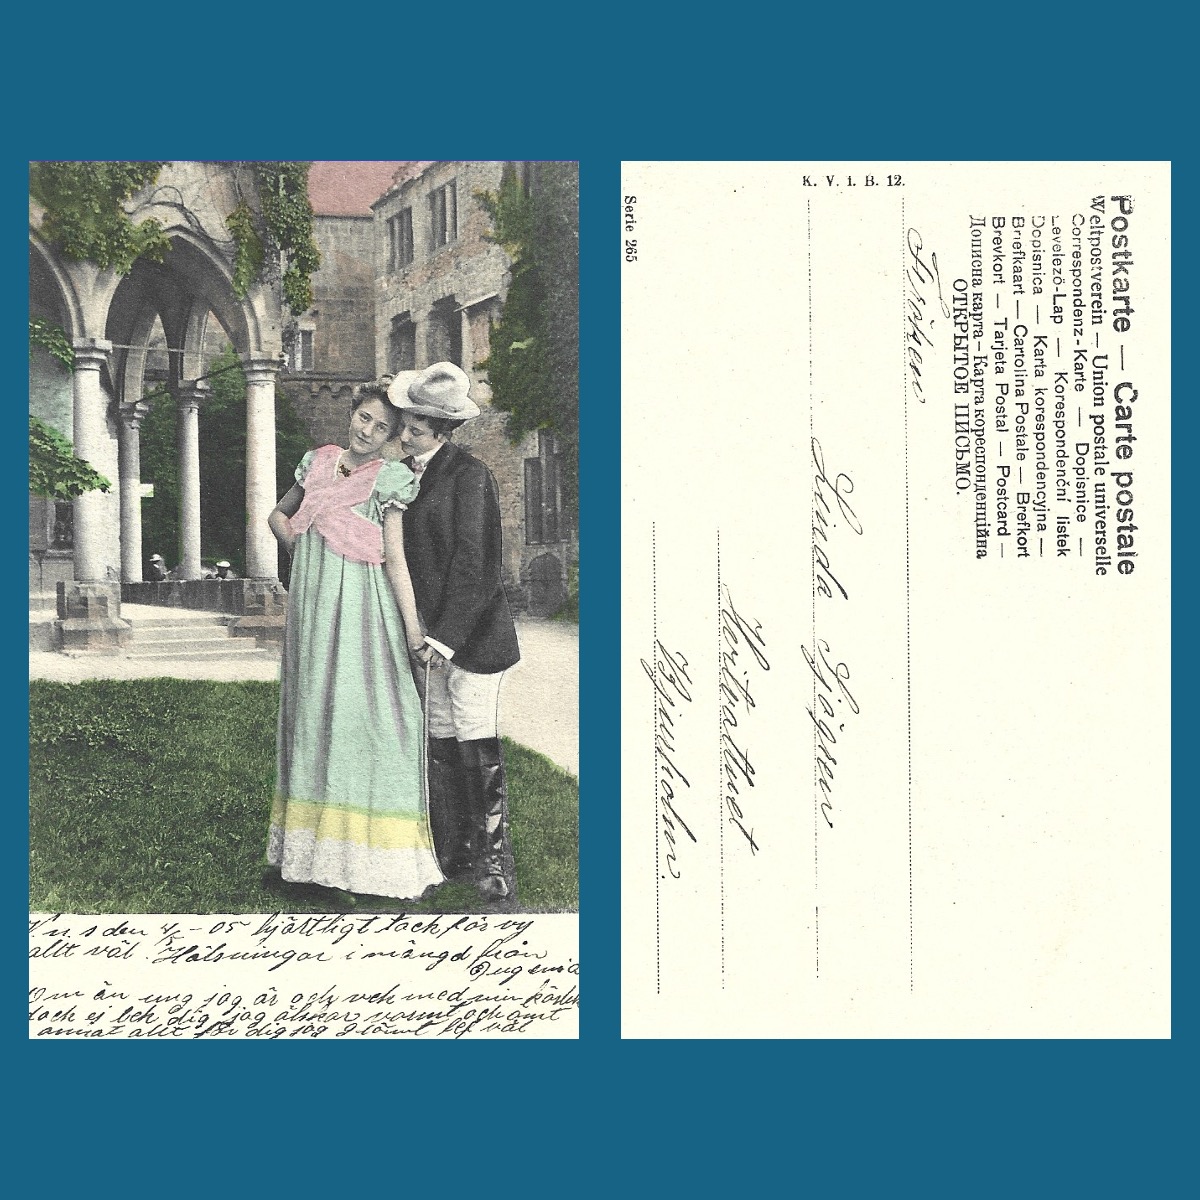 K. n. s den 4/5 - 05 hjärtligt tack för vy
allt väl. Hälsningar i mängd från
Eugenia
Om än ung jag är och vek med min kärlek
dock ej lek dig jag älskar varmt och ömt
annat allt för dig jag glömt lef väl
Postkarte — Carte postale
Weltpostverein — Union postale universelle
Correspondenz-Karte — Dopisnice —
Levelező-Lap — Korespondenční listek
Dopisnica — Karta korespondencyjna —
Briefkaart — Cartolina Postale — Brefkort
Brevkort — Tarjeta Postal — Postcard —
Дописна карта — Карта кореспонденцiйна
ОТКРЫТОЕ ПИСЬМО.
K. V. i. B. 12.
Fröken
Linda Sjögren
Herivattnet
Bjurholm.
Serie 265